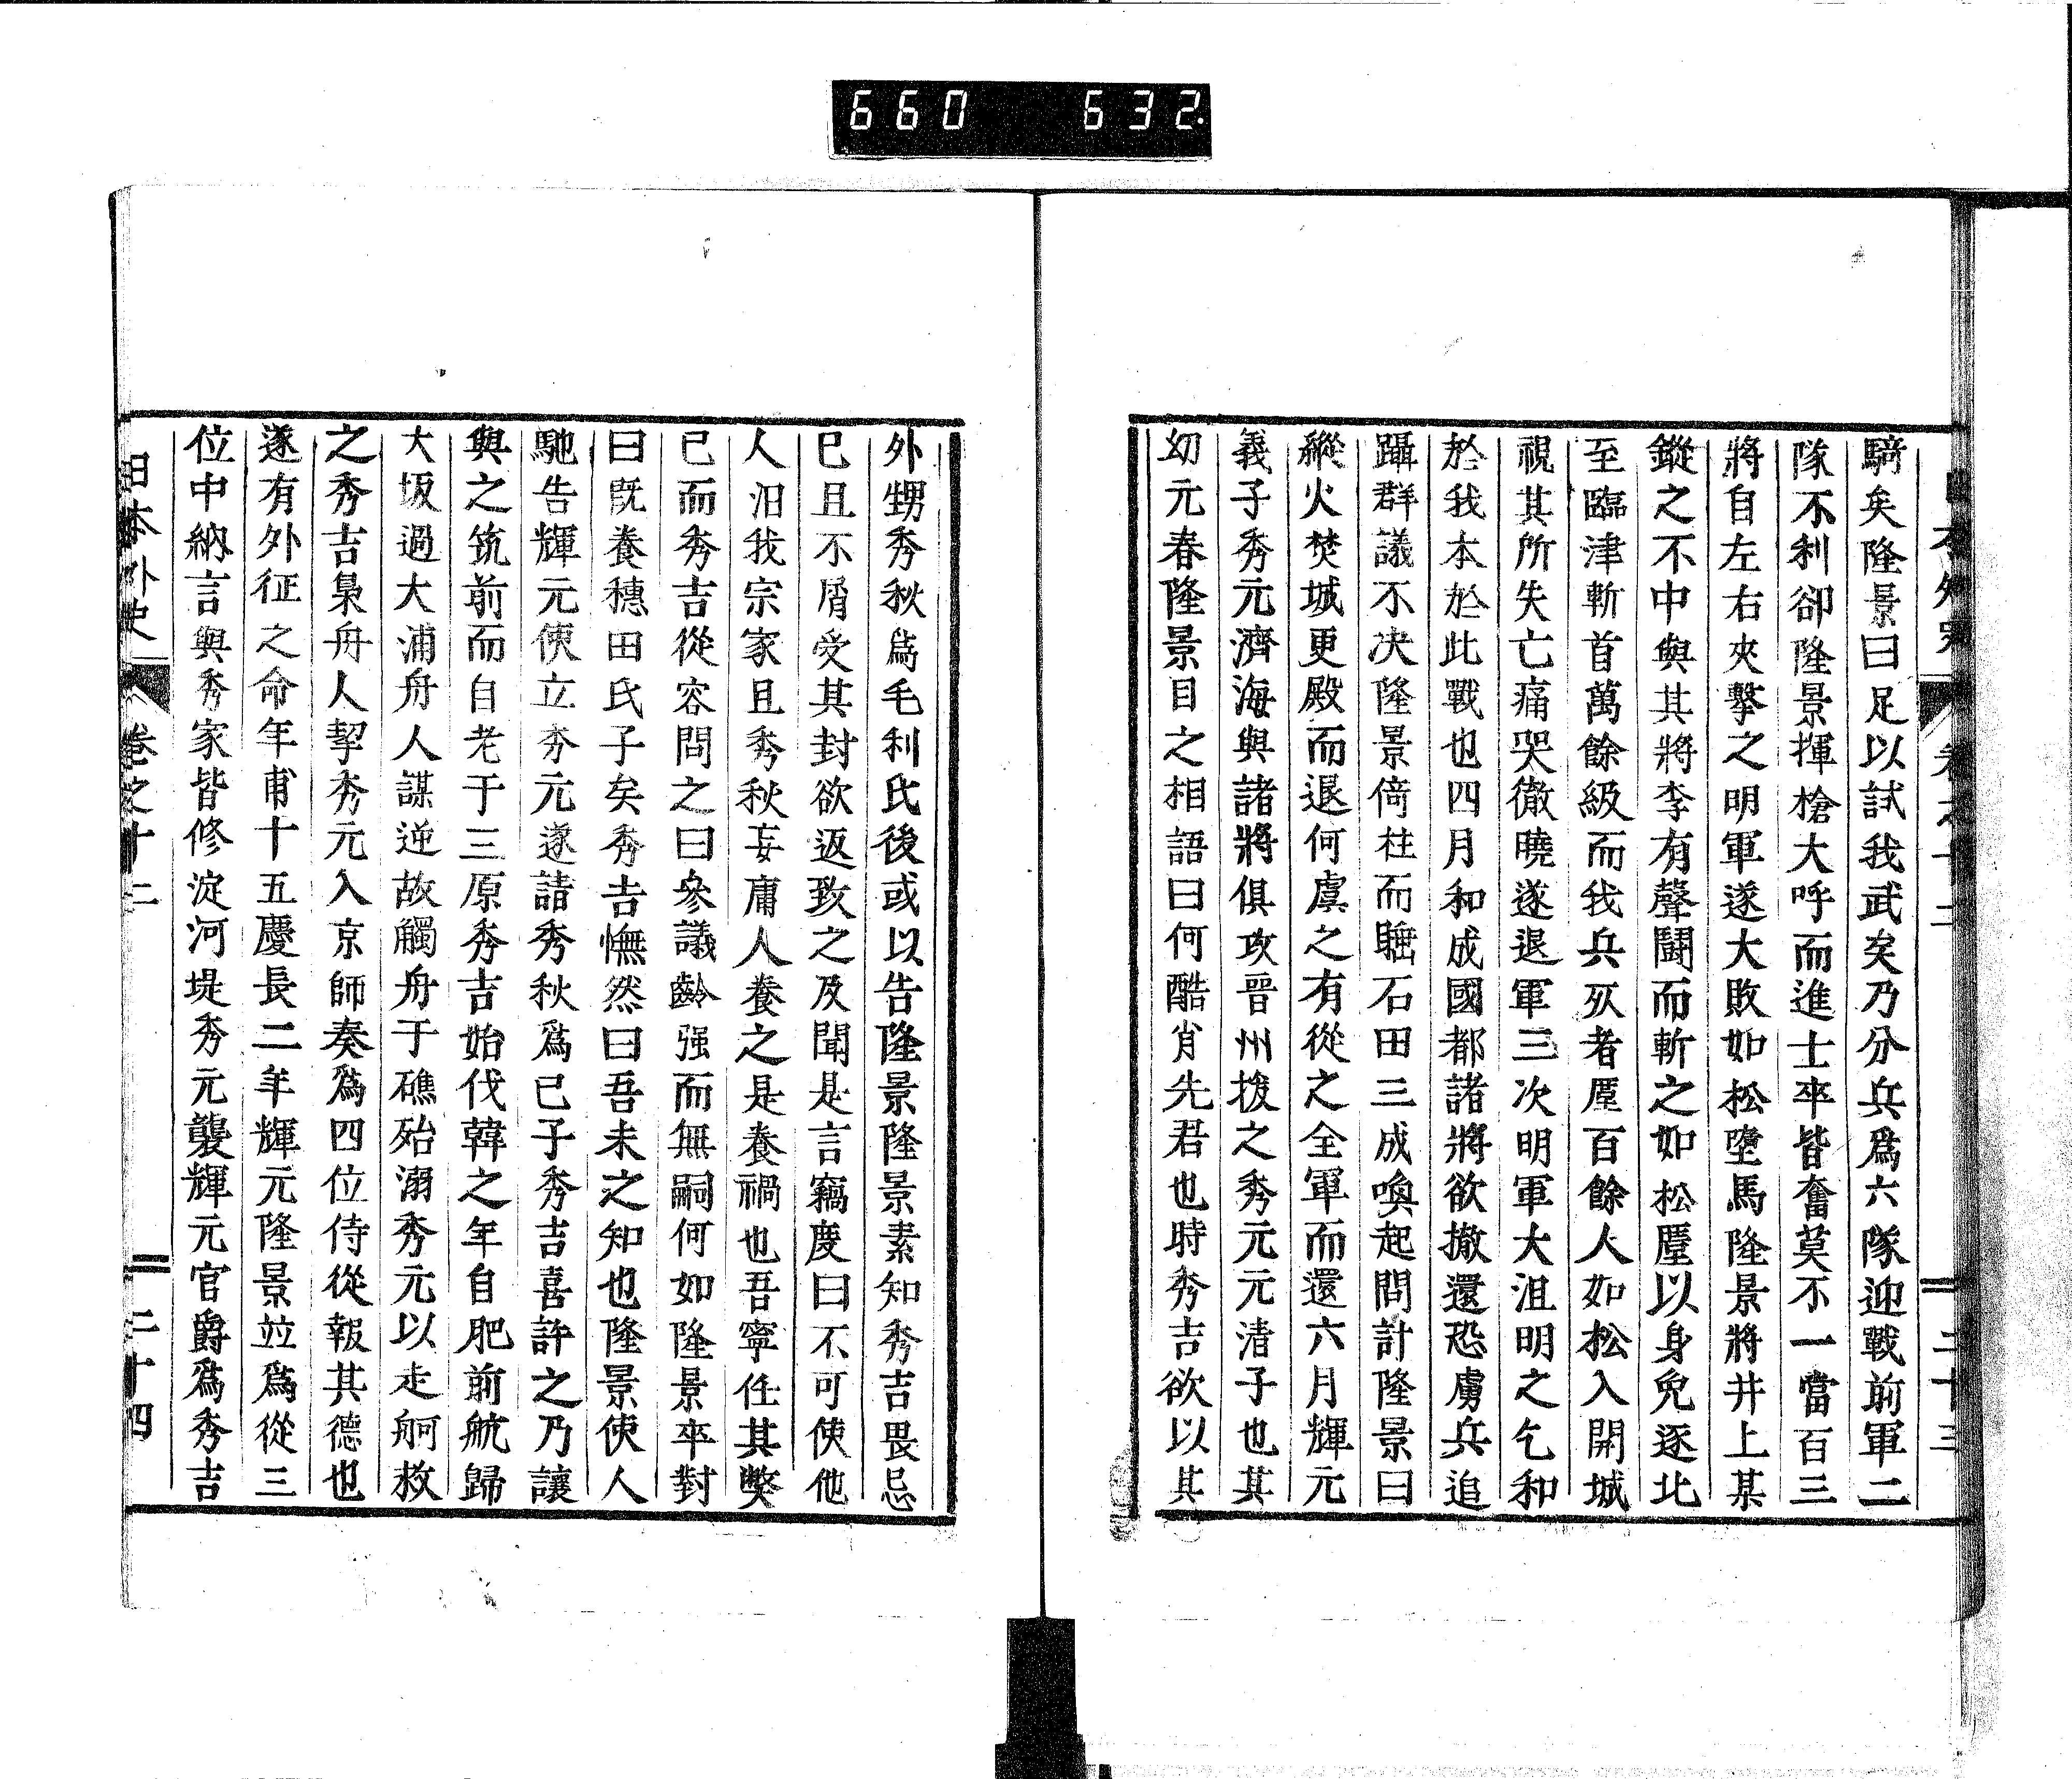 660 632.
日本外史 卷之十二 二十三
騎矣隆景曰足以試我武矣乃分兵爲六隊迎戰前軍二
隊不利卻隆景揮槍大呼而進士卒皆奮莫不一當百三
將自左右夾擊之明軍遂大敗如松墮馬隆景將井上某
鏦之不中與其將李有聲鬪而斬之如松廑以身免逐北
至臨津斬首萬餘級而我兵死者廑百餘人如松入開城
視其所失亡痛哭徹曉遂退軍三次明軍大沮明之乞和
於我本於此戰也四月和成國都諸將欲撤還恐虜兵追
躡群議不决隆景倚柱而睡石田三成喚起問計隆景曰
縱火焚城更殿而退何虞之有從之全軍而還六月輝元
義子秀元濟海與諸將俱攻晉州拔之秀元元清子也其
幼元春隆景目之相語曰何酷肖先君也時秀吉欲以其
外甥秀秋爲毛利氏後或以告隆景隆景素知秀吉畏忌
已且不屑受其封欲返致之及聞是言竊慶曰不可使他
人汨我宗家且秀秋妄庸人養之是養禍也吾寧任其獘
已而秀吉從容問之曰參議齡强而無嗣何如隆景卒對
曰既養穗田氏子矣秀吉憮然曰吾未之知也隆景使人
馳告輝元使立秀元遂請秀秋爲己子秀吉喜許之乃讓
與之筑前而自老于三原秀吉始伐韓之年自肥前航歸
大坂過大浦舟人謀逆故觸舟于礁殆溺秀元以走舸救
之秀吉梟舟人挈秀元入京師奏爲四位侍從報其德也
遂有外征之命年甫十五慶長二年輝元隆景竝爲從三
位中納言與秀家皆修淀河堤秀元襲輝元官爵爲秀吉
日本外史 卷之十二 二十四